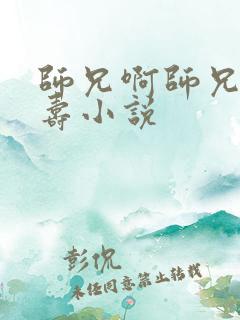 師兄啊師兄
壽小說
彭侃
未经同意禁止转载